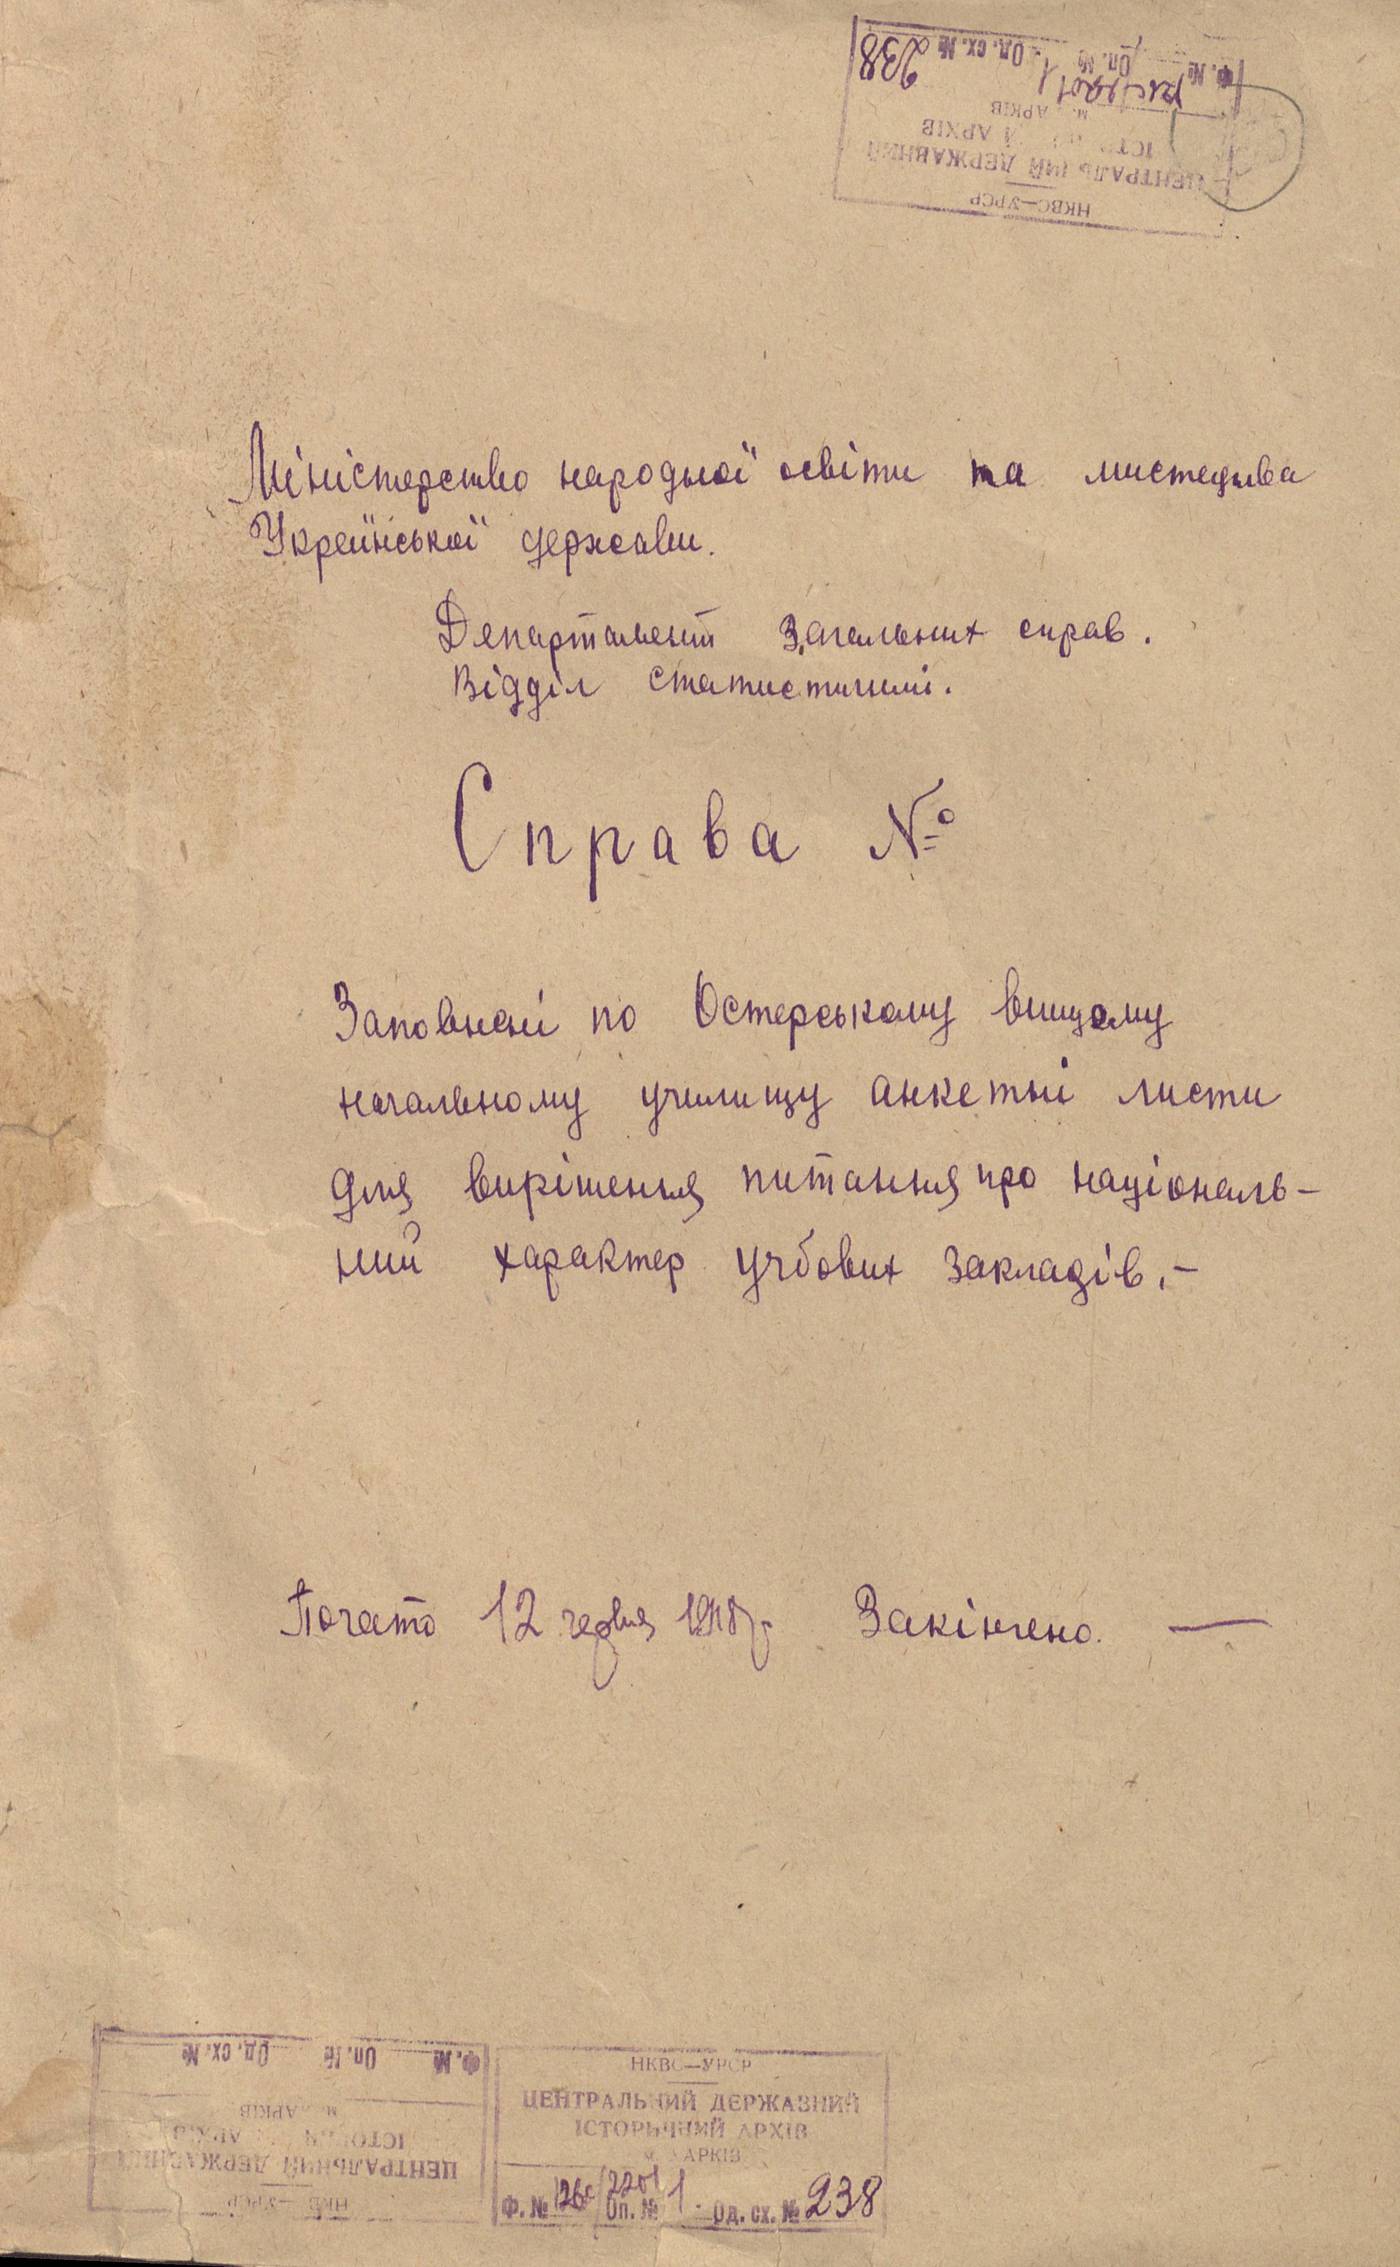 Ф. № 2201 Оп. № 1 Од. сх. № 238
м. АРКІВ
АРХІВ
ЦЕНТРАЛЬНИЙ ДЕРЖАВНИЙ
НКВС—УРСР
Міністерство народньої освіти та мистецтва
Української держави.
Департамент Загальних справ.
Відділ статистичний.
Справа №
Заповнені по Остерському вищому
начальному училищу анкетні листи
для вирішення питання про національ-
ний характер учбових закладів.-
Почато 12 червня 1918 р. Закінчено. —
Ф. № Оп. № Од. сх. №
м. АРКІВ
ЦЕНТРАЛЬНИЙ ДЕРЖАВНИЙ
НКВС—УРСР
НКВС—УРСР
ЦЕНТРАЛЬНИЙ ДЕРЖАВНИЙ
ІСТОРИЧНИЙ АРХІВ
м. АРКІВ
Ф. № 2201 Оп. № 1 Од. сх. № 238